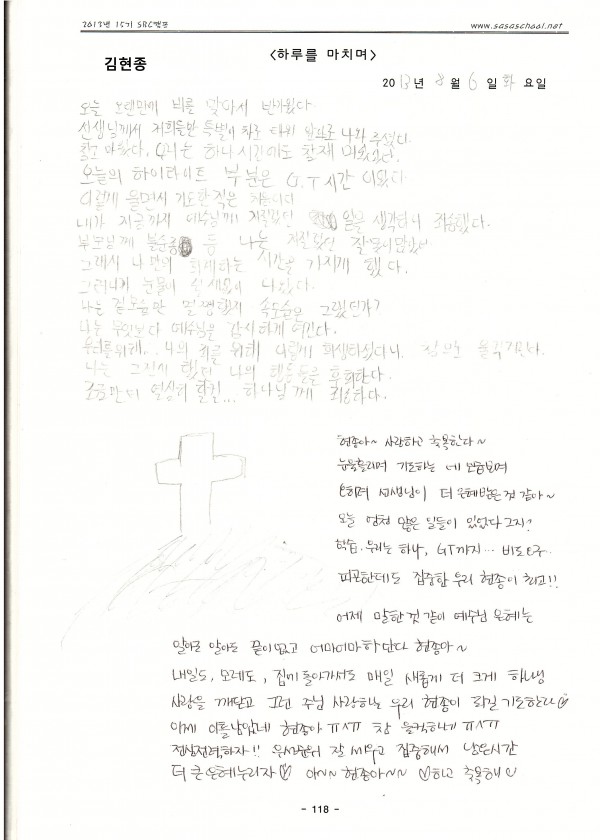 2013년 15기 SRC캠프
www.sasaschool.net
김현종
<하루를 마치며>
2013년 8월 6일 화요일
오늘 오랜만에 비를 맞아서 반가웠다.
선생님께서 저희들만 특별히 차로 태워 앞으로 나와 주셨다.
오늘의 하이라이트 부분은 G.T시간 이였다.
이렇게 울면서 기도한적은 처음이다
내가 지금까지 예수님께 저질렀던 일을 생각하니 죄송했다.
부모님께 불순종 등 나는 저질렀던 잘못이 많았어
그래서 나만의 회개하는 시간을 가지게 했다.
그러니까 눈물이 쉴새없이 나왔다.
나는 겉모습만 멀쩡했지 속모습은 그랬던가?
나는 무엇보다 예수님을 감사하게 여긴다.
우리를 위해... 나의 죄를 위해 이렇게 희생하셨다니. 참으로 울컥거린다.
나는 그전에 했던 나의 행동들을 후회한다.
조금만 더 열심히 할걸... 하나님께 죄송하다.
현종아~ 사랑하고 축복한다~
눈물흘리며 기도하는 네 모습보며
오히려 선생님이 더 은혜받은 것 같아~
오늘 엄청 많은 일들이 있었다 그지?
학습. 우리는 하나, GT까지...
피곤한데도 집중한 우리 현종이 최고!!
어제 말한 것 같이 예수님 은혜는
알아도 알아도 끝이 없고 어마어마하단다 현종아~
내일도, 모레도, 집에 돌아가서도 매일 새롭게 더 크게 하나님
사랑을 깨닫고 그런 주님 사랑하는 우리 현종이 되길 기도한다♡
이제 이틀남았네 현종아 ㅠㅅㅠ 참 울컥하네 ㅠㅅㅠ
전심전력하자!! 우선순위 잘 세우고 집중해서 남은시간
더 큰 은혜누리자♡ 아~~ 현종아~~ ♡하고 축복해♡
- 118 -